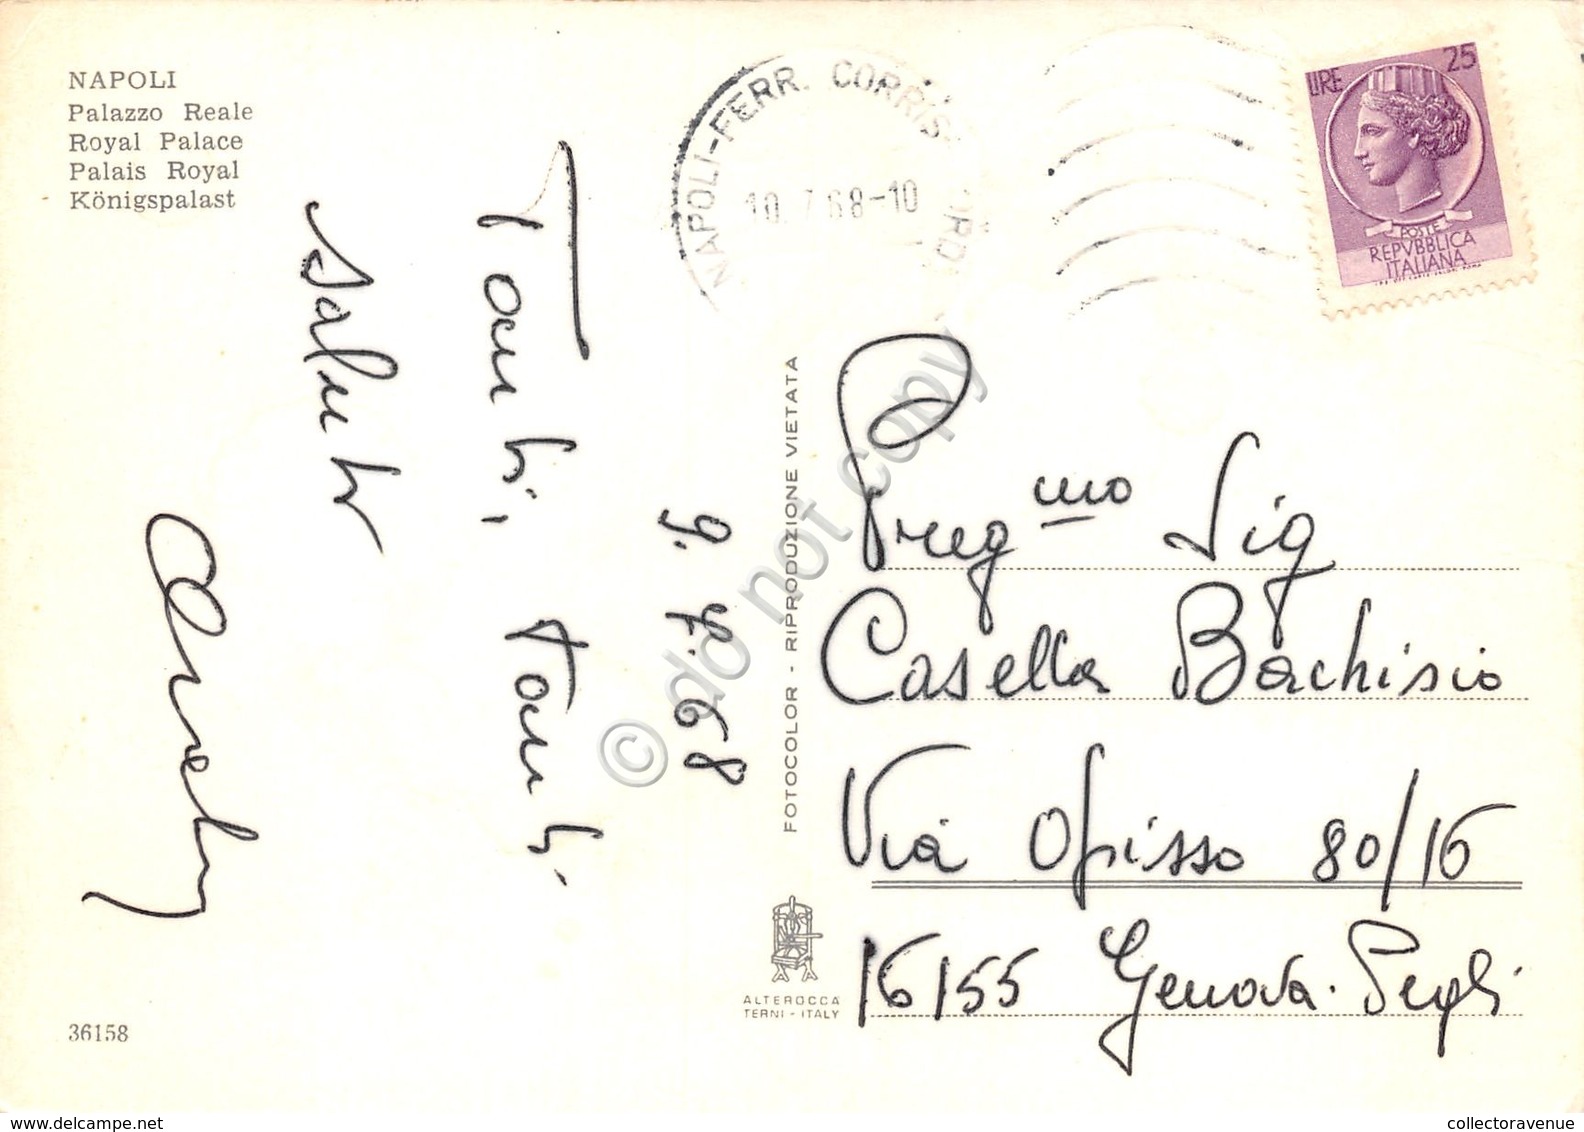 NAPOLI
Palazzo Reale
Royal Palace
Palais Royal
Königspalast
NAPOLI-FERR. CORRIS
10. 7 68-10
LIRE 25
POSTE
REPVBBLICA
ITALIANA
9.7.68
Tanti, tanti
saluti
FOTOCOLOR - RIPRODUZIONE VIETATA
Preg.mo Sig
Casella Bachisio
Via Opisso 80/16
16155 Genova-Pegli
ALTEROCCA
TERNI - ITALY
36158
© do not copy
collectoravenue